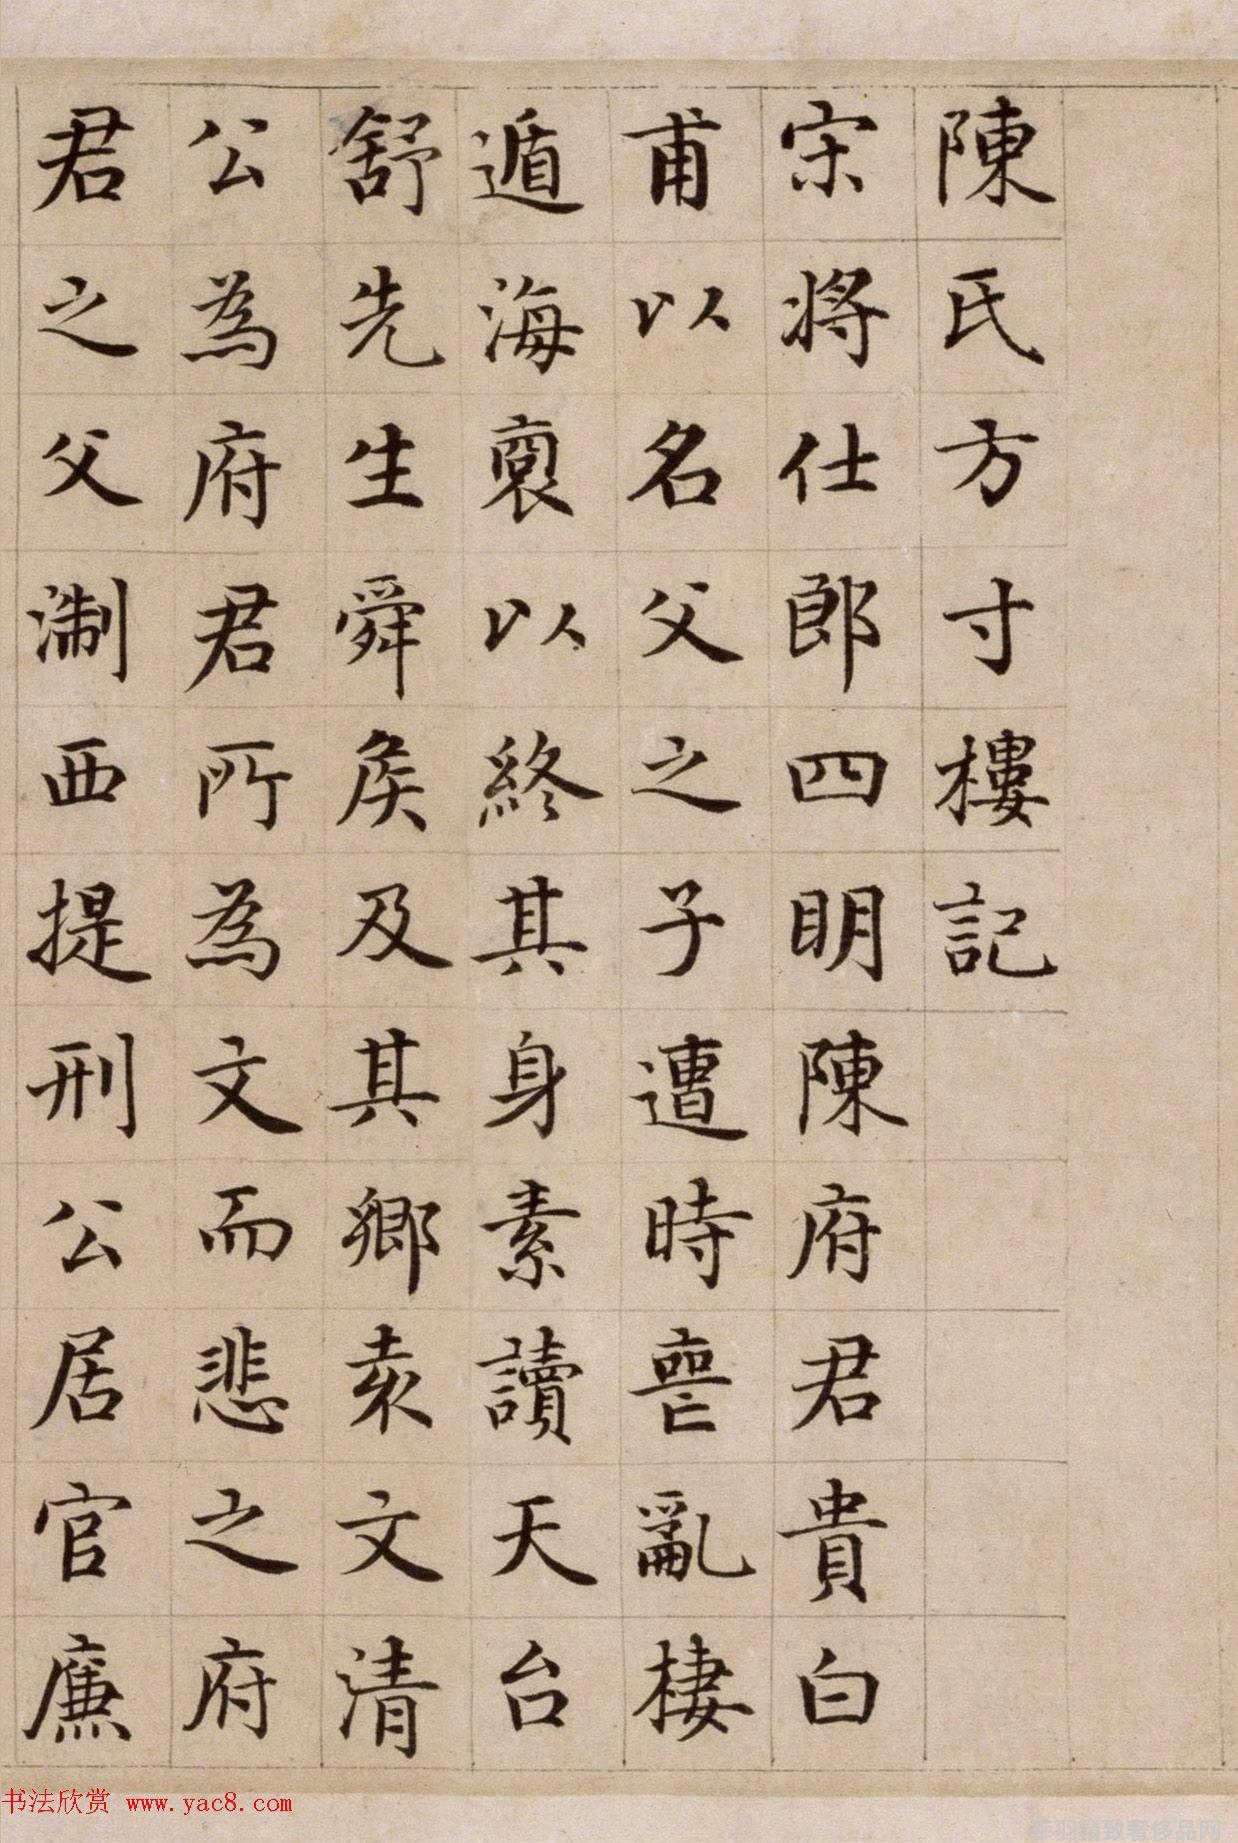 陳氏方寸樓記
宋將仕郎四明陳府君貴白
甫以名父之子遭時喪亂棲
遁海裔以終其身素讀天台
舒先生舜侯及其鄉袁文清
公為府君所為文而悲之府
君之父淛西提刑公居官廉
书法欣赏 www.yac8.com